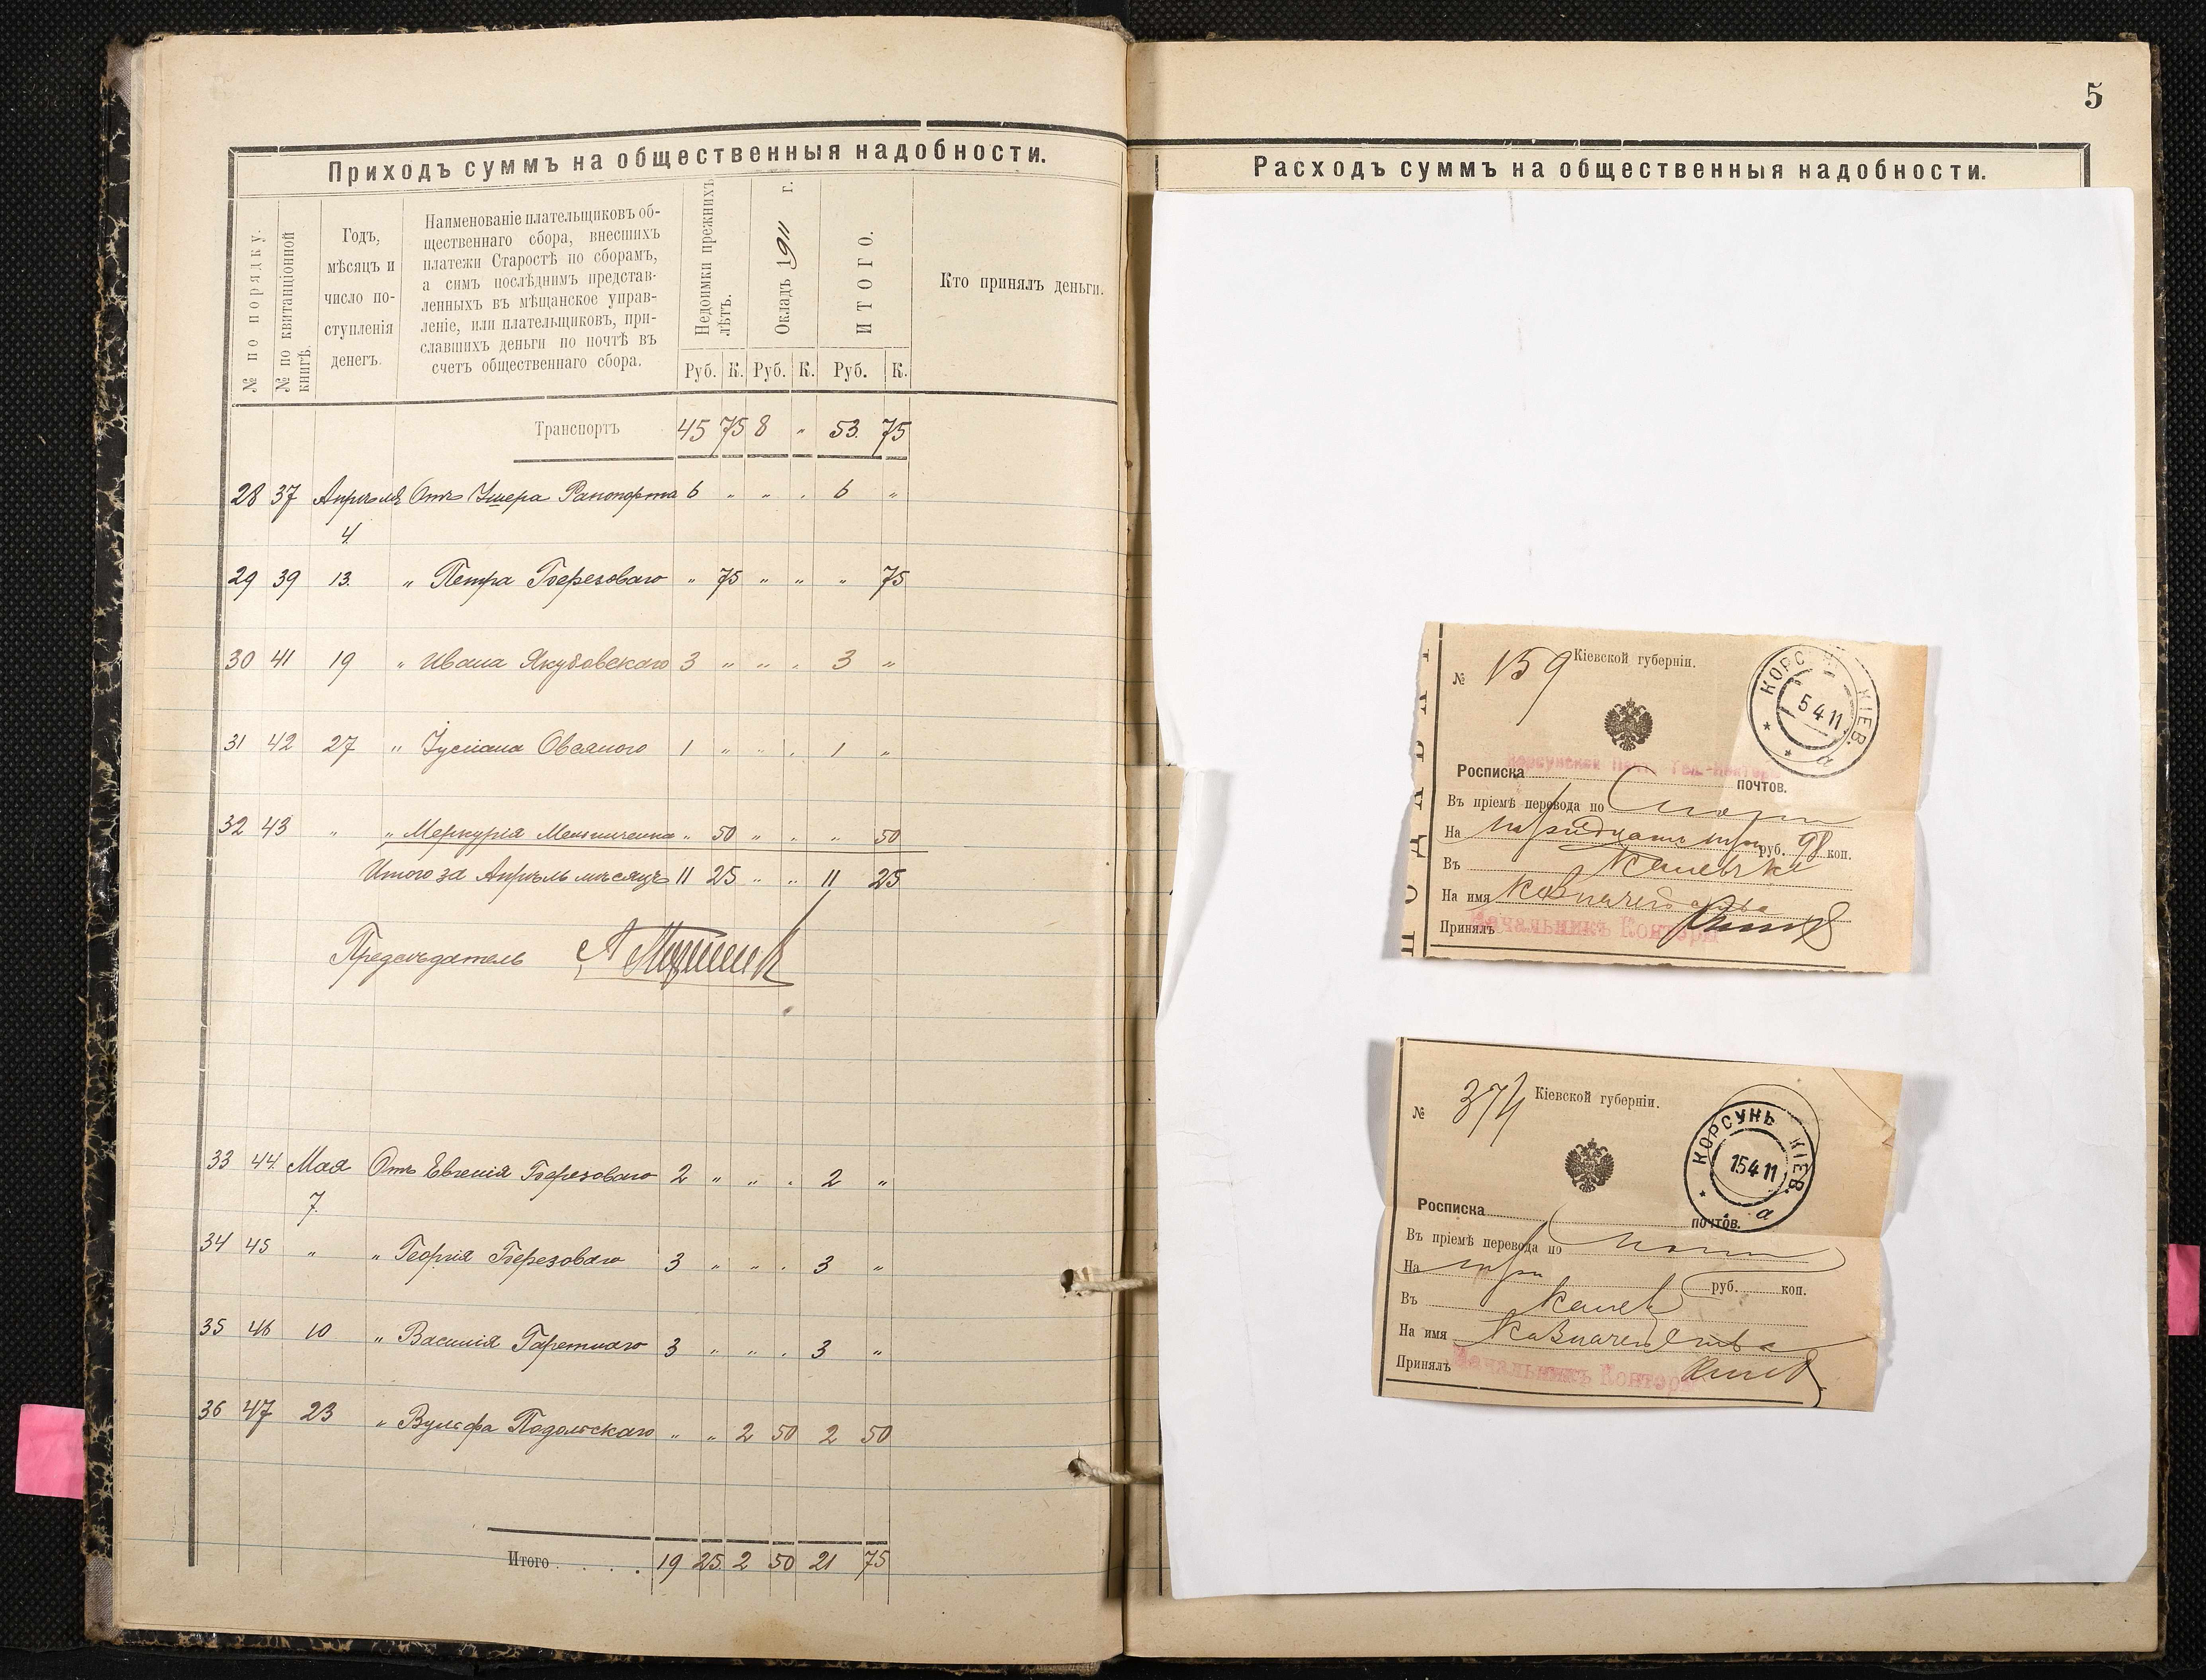 Приходъ суммъ на общественныя надобности.
№ по порядку.
№ по квитанціонной книгѣ.
Годъ,
мѣсяцъ и
число по-
ступленія
денегъ.
Наименованіе плательщиковъ об-
щественнаго сбора, внесшихъ
платежи Старостѣ по сборамъ,
а симъ послѣднимъ представ-
ленныхъ въ мѣщанское управ-
леніе, или плательщиковъ, при-
славшихъ деньги по почтѣ въ
счетъ общественнаго сбора.
Недоимки прежнихъ лѣтъ.
Окладъ 1911 г.
ИТОГО.
Кто принялъ деньги.
Руб. К. Руб. К. Руб. К.
Транспортъ 45 75 8 „ 53. 75
28 37 Апрѣля Отъ Ушера Рапопорта 6 „ „ „ 6 „
4.
29 39 13. „ Петра Березоваго „ 75 „ „ „ 75
30 41 19 „ Ивана Якубовскаго 3 „ „ „ 3 „
31 42 27 „ Овсяного 1 „ „ „ 1 „
32 43 „ „ Меркурія Мельниченка „ 50 „ „ „ 50
Итого за Апрѣль мѣсяцъ 11 25 „ „ 11 25
Предсѣдатель
33 44. Мая Отъ Евгенія Березоваго 2 „ „ „ 2 „
7.
34 45 „ „ Георгія Березоваго 3 „ „ „ 3 „
35 46 10 „ Василія 3 „ „ „ 3 „
36 47 23 „ Вульфа Подольскаго „ „ 2 50 2 50
Итого . . . . 19 25. 2 50 21 75
5
Расходъ суммъ на общественныя надобности.
№ 159 Кіевской губерніи.
КОРСУНЬ КІЕВ.
5 4 11
а
Росписка
почтов.
Въ пріемѣ перевода по почт
На тридцать три руб. 98 коп.
Въ Каневъ
На имя Казначейства
Принялъ
Начальникъ Конторы
№ 374 Кіевской губерніи.
КОРСУНЬ КІЕВ.
15 4 11
а
Росписка
почтов.
Въ пріемѣ перевода по почт
На три руб. коп.
Въ Канев
На имя Казначейства
Принялъ
Начальникъ Конторы